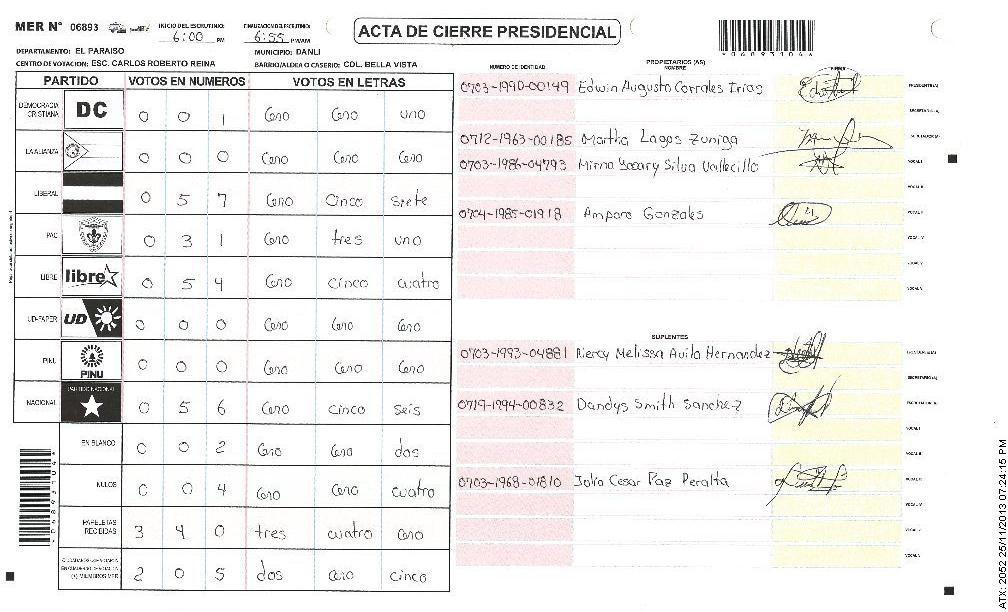 MER N° 06893
INICIO DEL ESCRUTINIO: 6:00 PM
FINALIZACION DEL ESCRUTINIO: 6:55 PM/AM
ACTA DE CIERRE PRESIDENCIAL
*06893104*
DEPARTAMENTO: EL PARAISO
MUNICIPIO: DANLI
CENTRO DE VOTACION: ESC. CARLOS ROBERTO REINA
BARRIO/ALDEA O CASERIO: COL. BELLA VISTA
PARTIDO VOTOS EN NUMEROS VOTOS EN LETRAS
DEMOCRACIA CRISTIANA DC 0 0 1 Cero Cero uno
LA ALIANZA 0 0 0 Cero Cero Cero
LIBERAL 0 5 7 Cero Cinco siete
PAC 0 3 1 Cero tres uno
LIBRE libre 0 5 4 Cero cinco cuatro
UD-FAPER UD 0 0 0 Cero Cero Cero
PINU PINU 0 0 0 Cero Cero Cero
NACIONAL PARTIDO NACIONAL 0 5 6 Cero cinco seis
EN BLANCO 0 0 2 Cero Cero dos
NULOS 0 0 4 Cero Cero cuatro
PAPELETAS RECIBIDAS 3 4 0 tres cuatro Cero
(+) MIEMBROS MER 2 0 5 dos cero cinco
*06893104*
NUMERO DE IDENTIDAD
PROPIETARIOS (AS)
NOMBRE
FIRMA
0703-1990-00149 Edwin Augusto Corrales Irias PRESIDENTE(A)
SECRETARIO(A)
0712-1963-00185 Martha Lagos Zuniga ESCRUTADOR(A)
0703-1986-04793 Mirna Yessary Silva Vallecillo VOCAL I
VOCAL II
0704-1985-01918 Amparo Gonzales VOCAL III
VOCAL IV
VOCAL V
SUPLENTES
0703-1993-04881 Riercy Melissa Avila Hernandez PRESIDENTE(A)
SECRETARIO(A)
0719-1994-00832 Dandys Smith Sanchez ESCRUTADOR(A)
VOCAL I
VOCAL II
0703-1968-01810 Julio Cesar Paz Peralta VOCAL III
VOCAL IV
VOCAL V
ATX: 2052 25/11/2013 07:24:15 PM